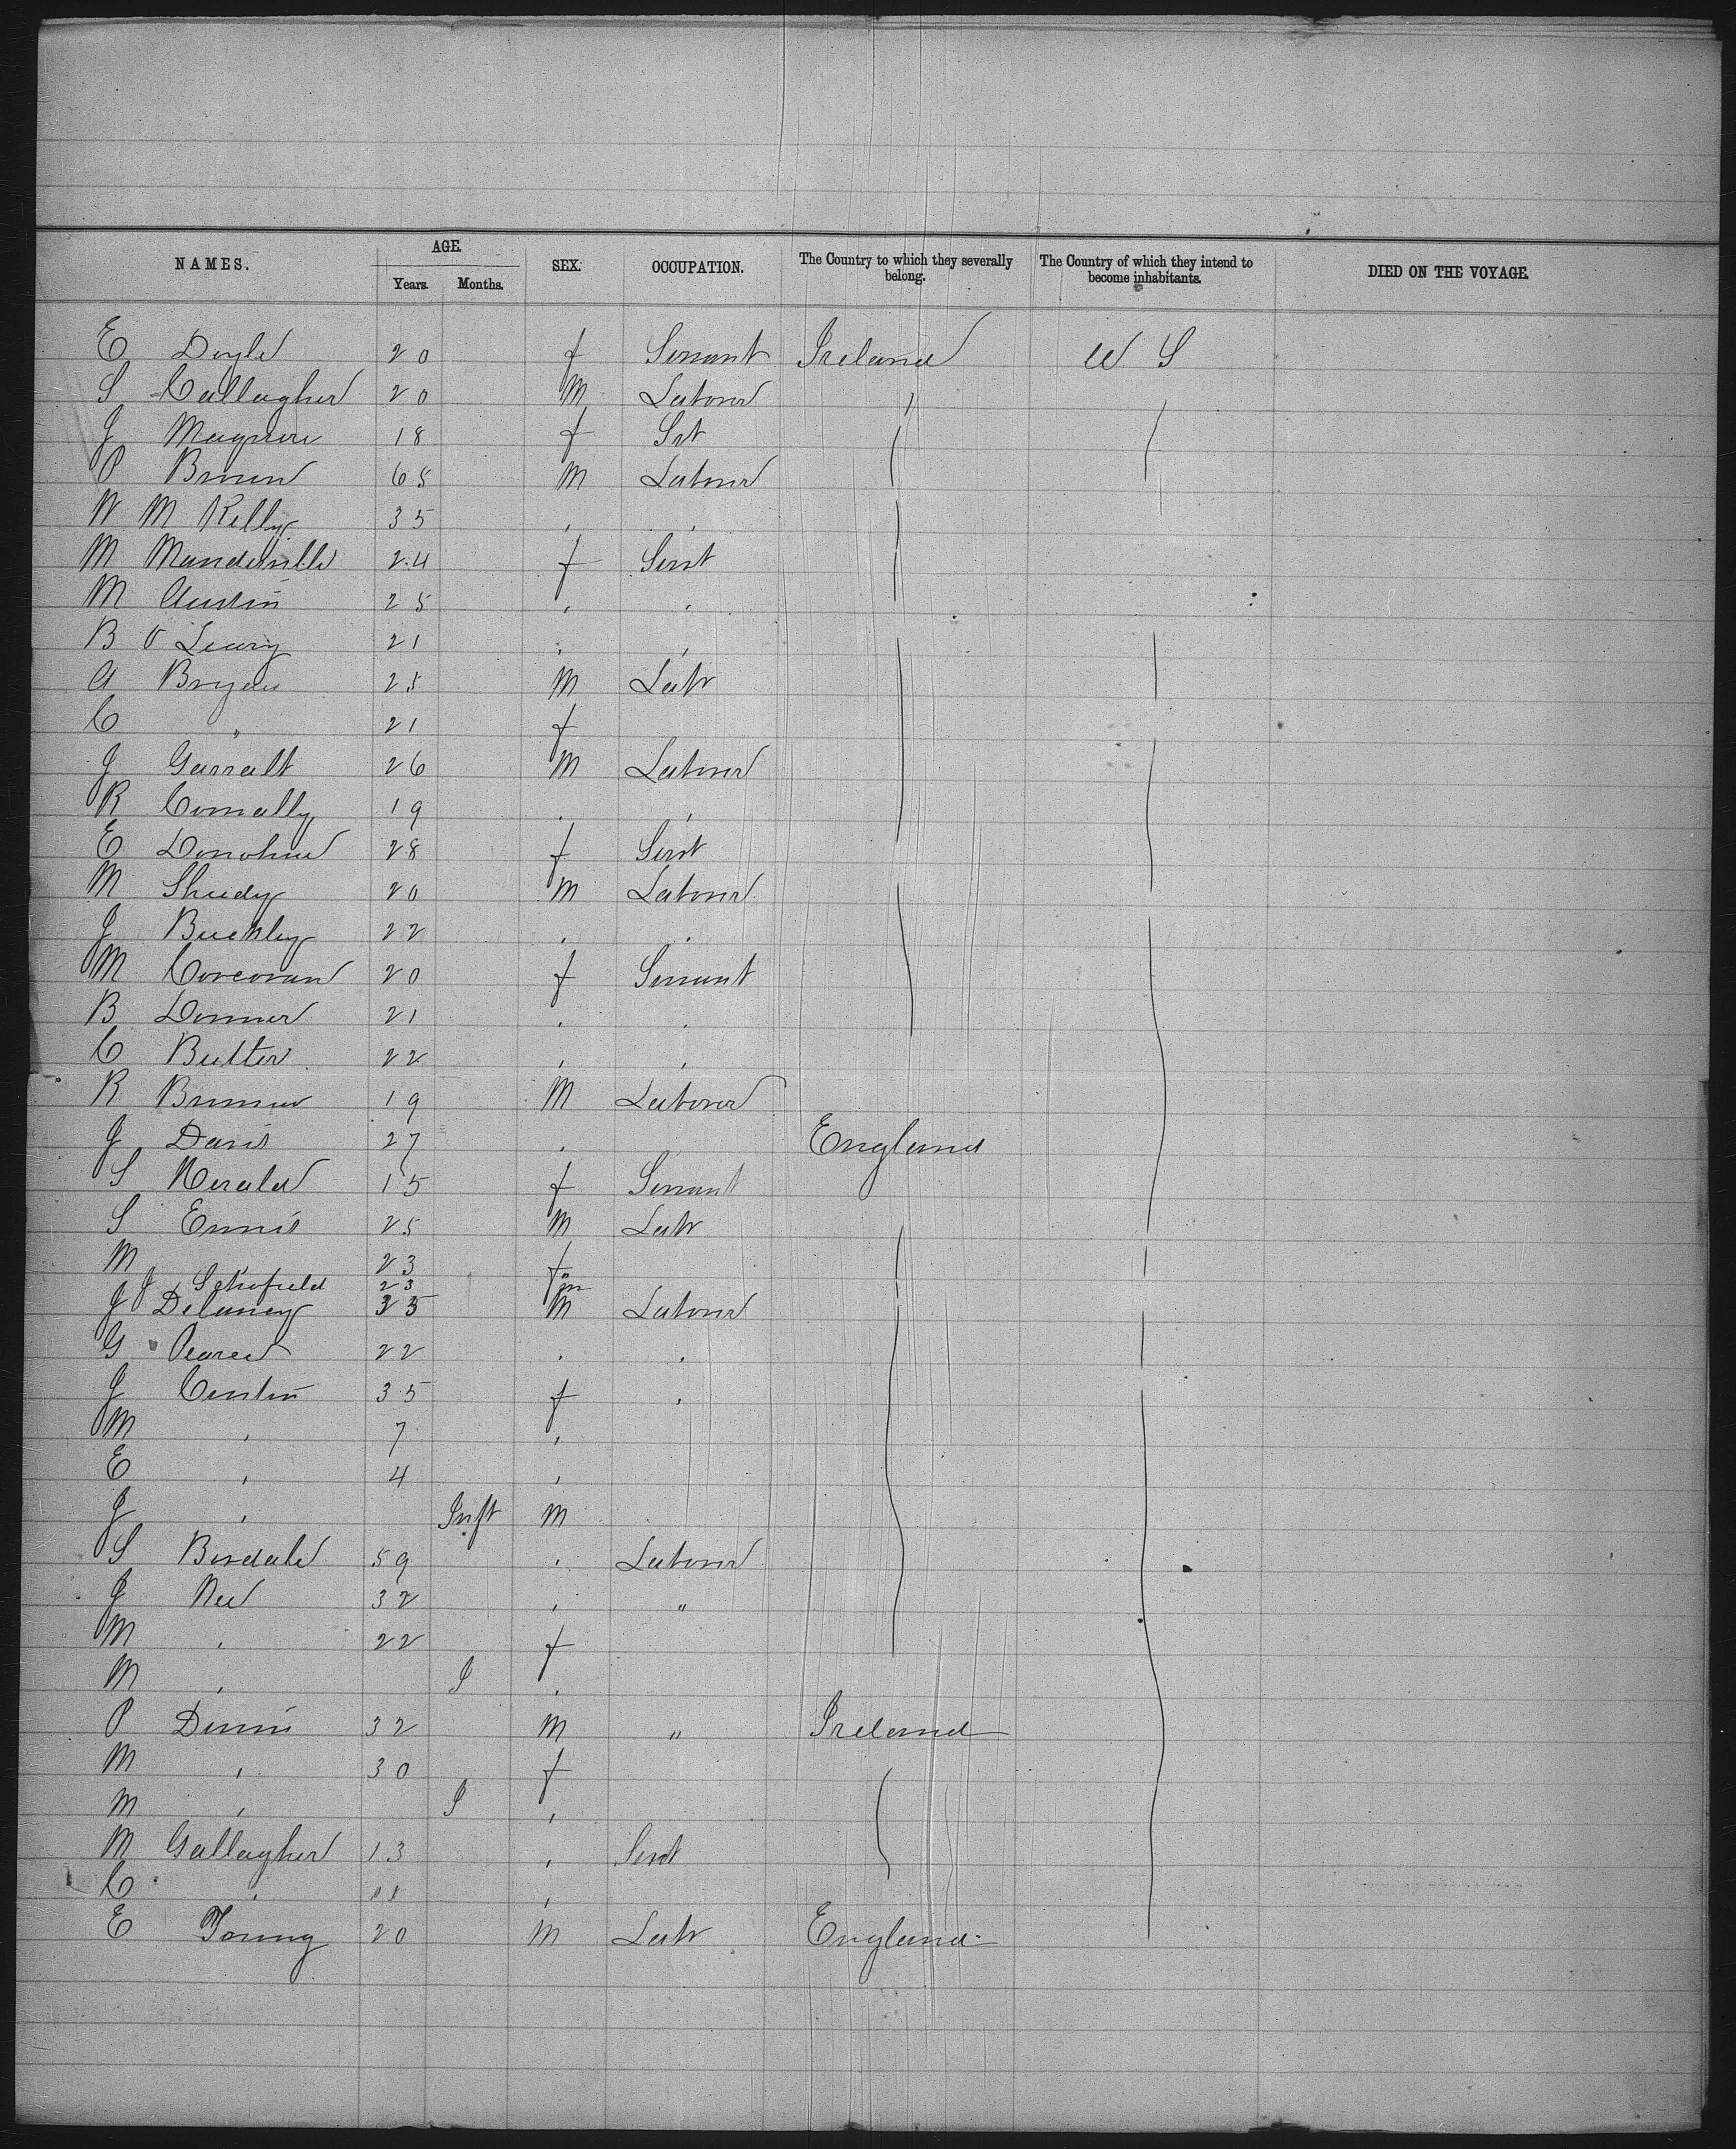 NAMES. AGE. Years. Months. SEX. OCCUPATION. The Country to which they severally belong. The Country of which they intend to become inhabitants. DIED ON THE VOYAGE.
E Doyle 20 f Servant Ireland U S
S Callagher 20 M Laborer "
J Maguire 18 f Svt
P Brown 65 M Laborer
W M Kelly 35 " "
M Mandeville 24 f Servt
M Austin 25 " "
B O Leary 21 " "
A Bryan 25 M Labr
C " 21 f
J Garralt 26 M Laborer
R Connally 19 " "
E Donohue 28 f Servt
M Sheedy 20 M Laborer
J Buckley 22 " "
M Corcoran 20 f Servant
B Donner 21 " "
C Butter 22 " "
R Brennan 19 M Laborer
J Davis 27 " England
S 15 f Servant
S Ennis 25 M Labr
M " 23 f
J Schofield 23 m
J Delaney 35 M Laborer
G Pearce 22 " "
J 35 f "
M " 7 "
E " 4 "
J " Inft M
S Bisdale 59 " Laborer
J Nee 32 " "
M " 22 f
M " I "
P Dinnis 32 M " Ireland
M " 30 f
M " I "
M Gallagher 13 " Servt
C " 11 "
E Young 20 M Labr England